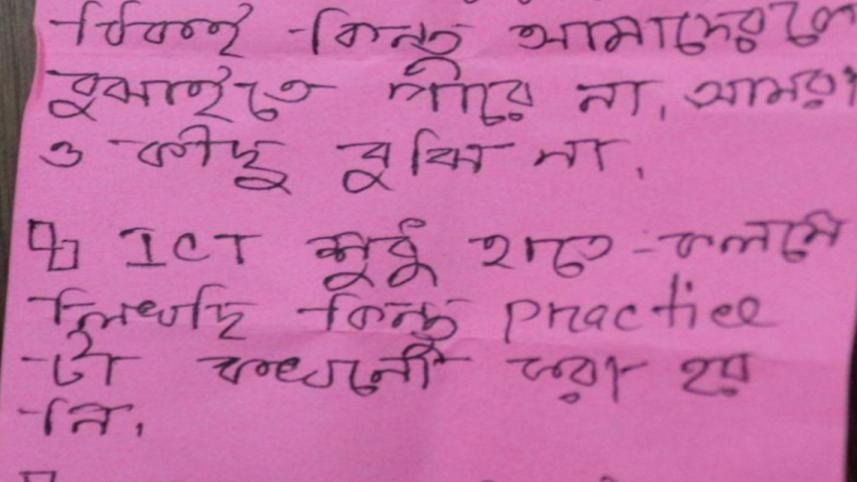 ঠিকই কিন্তু আমাদেরকে
বুঝাইতে পারে না, আমরা
ও কীছু বুঝি না,
ICT শুধু হাতে-কলমে
লিখেছি কিন্তু practice
টা কখনো করা হয়
নি,